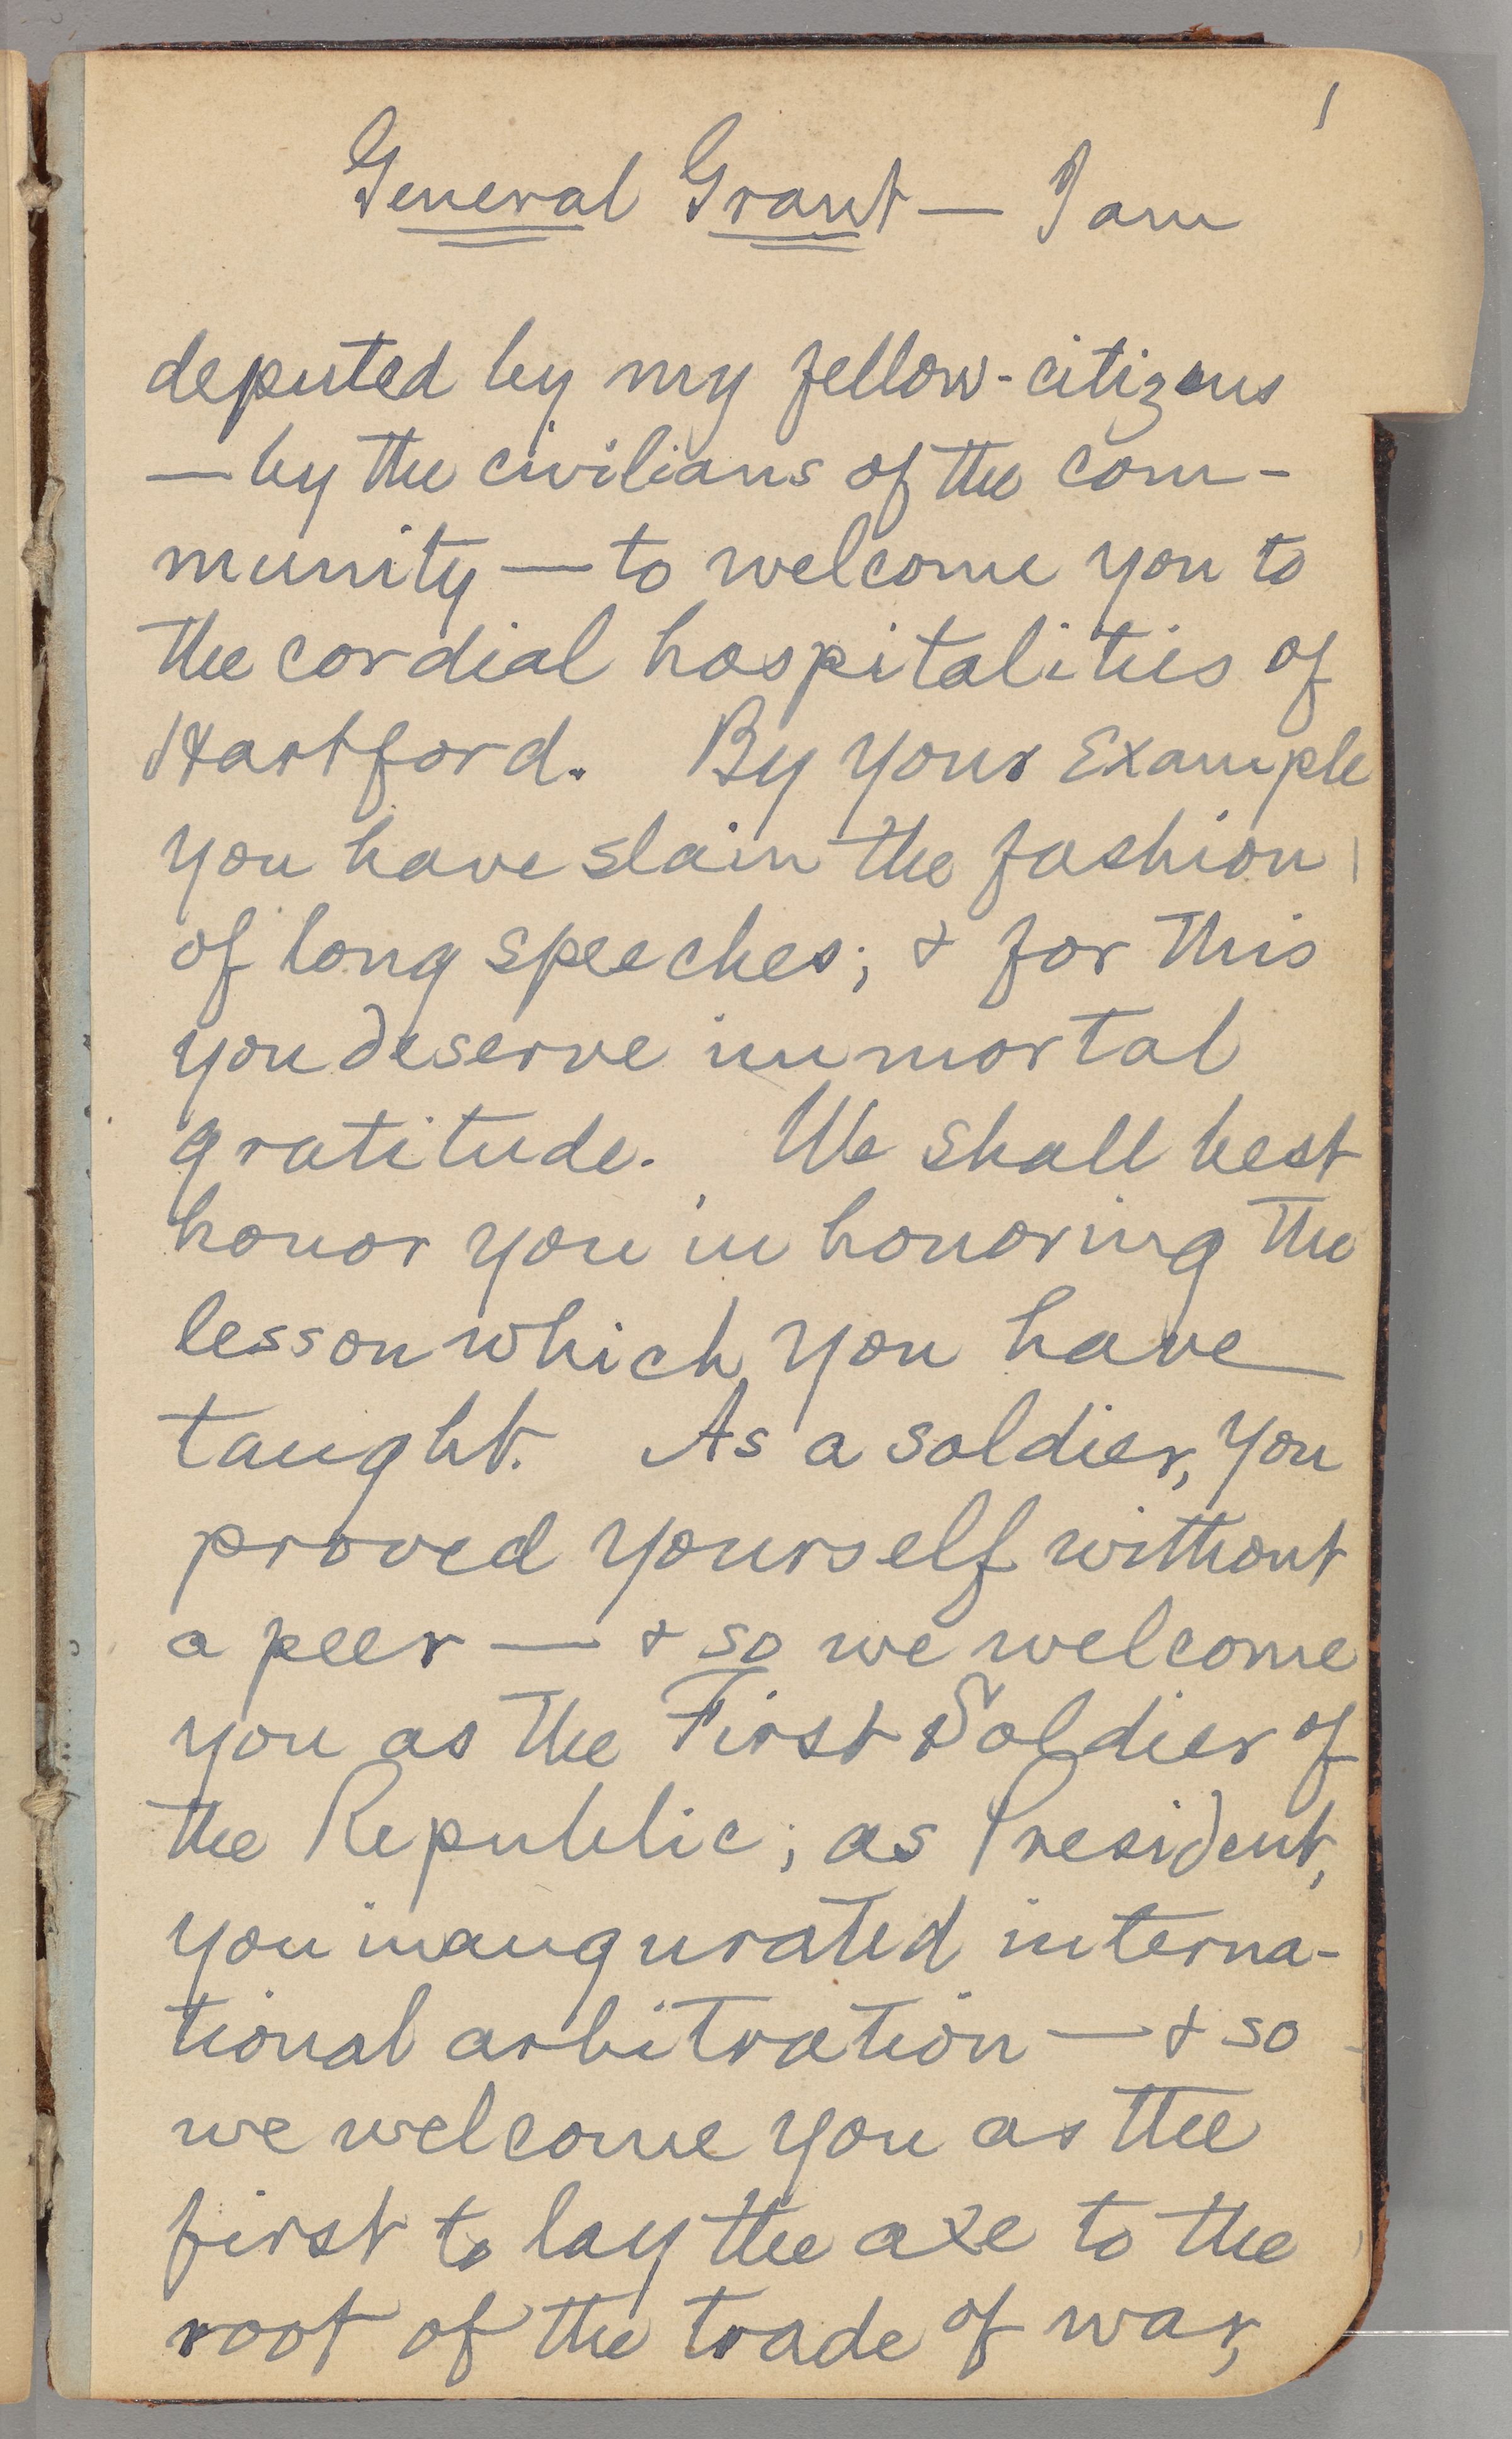 1
General Grant — I am
deputed by my fellow-citizens
— by the civilians of the com-
munity — to welcome you to
the cordial hospitalities of
Hartford. By your Example
you have slain the fashion
of long speeches; & for this
you deserve immortal
gratitude. We shall best
honor you in honoring the
lesson which you have
taught. As a soldier, you
proved yourself without
a peer — & so we welcome
you as the First Soldier of
the Republic; as President,
you inaugurated interna-
tional arbitration — & so
we welcome you as the
first to lay the axe to the
root of the trade of war,